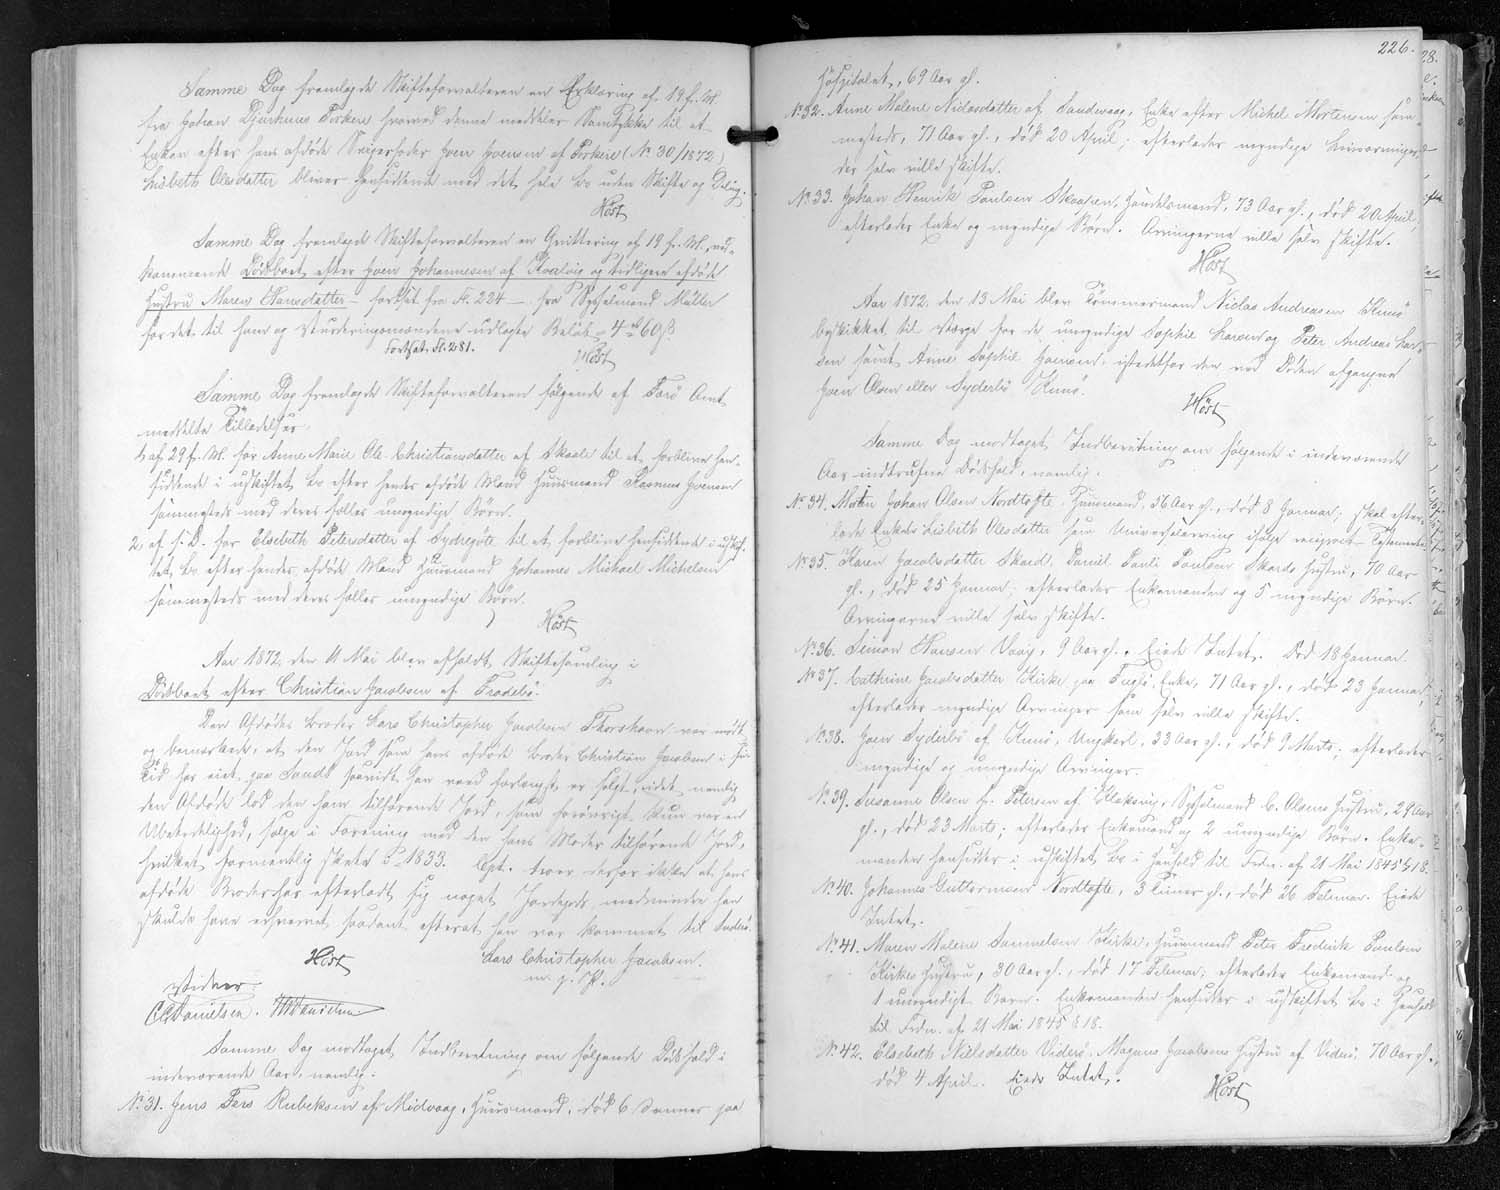 Samme Dag fremlagde Skifteforvalteren en Erklæring af 19 f. M.
fra Johan Djurhuus Porkere hvorved denne meddeler Samtykke til at
Enken efter hans afdøde Svigerfader Joen Joensen af Porkere (No 30/1872)
Lisbeth Olesdatter bliver hensiddende med det hele Bo uden Skifte og Deling.
Höst
Samme Dag fremlagde Skifteforvalteren en Qvittering af 19 f. M., ved-
kommende Dödsboet efter Joen Johannesen af Hvalvig og tidligere afdøde
Hustru Maren Hansdatter – fortsat fra Fl. 224 – fra Sysselmand Müller
for det til ham og Vurderingsmændene udlagte Beløb – 4 rd 60 ß
Fortsat Fl. 281.
Höst
Samme Dag fremlagde Skifteforvalteren følgende af Færø Amt
meddelte Tilladelser.
1, af 29 f. M. for Anne Marie Ole Christiansdatter af Skaale til at forblive hen-
siddende i uskiftet Bo efter hendes afdøde Mand Huusmand Rasmus Joensen
sammesteds med deres fælles umyndige Börn.
2, af s. D. for Elsebeth Petersdatter af Sydregöte til at forblive hensiddende i uskif-
tet Bo efter hendes afdøde Mand Huusmand Johannes Michael Michelsen
sammesteds med deres fælles umyndige Börn.
Höst
Aar 1872, den 11 Mai blev afholdt Skiftesamling i
Dödsboet efter Christian Jacobsen af Frodebö.
Den Afdödes Broder Lars Christopher Jacobsen Thorshavn var mødt
og bemærkede, at den Jord som hans afdøde Broder Christian Jacobsen i sin
Tid har eiet paa Sandö saavidt han veed forlængst er solgt, idet nemlig
den Afdöde lod den ham tilhørende Jord, som forövrigt kun var en
Ubetydelighed, sælge i Forening med den hans Moder tilhørende Jord,
hvilket formentlig skete i 1833. Cpt. troer derfor ikke at hans
afdøde Broder har efterladt sig noget Jordegods, medmindre han
skulde have erhvervet saadant efterat han var kommet til Suderö.
Höst
Lars Christopher Jacobsen.
m. f. P.
Vidner:
C. Danielsen. H. Davidsen
Samme Dag modtaget Indberetning om følgende Dödsfald i
indeværende Aar, nemlig.
No 31. Jens Pers Rubeksen af Midvaag, Huusmand, död 6 dennes paa
226.
Hospitalet, 69 Aar gl.
No 32. Anne Malene Niclasdatter af Sandevaag, Enke efter Michel Mortensen sam-
mesteds, 71 Aar gl., död 20 April; efterlader myndige Livsarvinger
der selv ville skifte.
No 33. Johan Henrik Poulsen Skaalen, Handelsmand, 73 Aar gl., död 20 April,
efterlader Enke og myndige Börn. Arvingerne ville selv skifte.
Höst
Aar 1872, den 13 Mai blev Tömmermand Niclas Andreasen Kunö
beskikket til Værge for de umyndige Sophie Larsen og Peter Andreas Lar-
sen samt Anne Sophie Joensen, istedetfor den ved Döden afgangne
Joen Olsen eller Syderbö Kunö.
Höst
Samme Dag modtaget Indberetning om følgende i indeværende
Aar indtrufne Dödsfald, nemlig.
No 34. Morten Johan Olsen Nordtofte, Huusmand, 56 Aar gl., död 8 Januar; skal efter-
lade Enken Lisbeth Olesdatter som Universalarving ifølge Testamente.
No 35. Karen Jacobsdatter Skard, Daniel Pauli Poulsen Skards Hustru, 70 Aar
gl., död 25 Januar; efterlader Enkemanden og 5 myndige Börn.
Arvingerne ville selv skifte.
No 36. Simon Hansen Vaag, 9 Aar gl. Eiede Intet. Död 18 Januar.
No 37. Cathrine Jacobsdatter Kirke paa Fuglö, Enke, 71 Aar gl., död 23 Januar,
efterlader myndige Arvinger som selv ville skifte.
No 38. Joen Syderbö af Kunö, Ungkarl, 33 Aar gl., död 9 Marts; efterlader
myndige og umyndige Arvinger.
No 39. Susanne Olsen f. Petersen af Klaksvig, Sysselmand C. Olsens Hustru, 29 Aar
gl., död 23 Marts; efterlader Enkemand og 2 umyndige Börn. Enke-
manden hensidder i uskiftet Bo i Henhold til Frdn. af 21 Mai 1845 § 18.
No 40. Johannes Guttormsen Nordtofte, 3 Timer gl., död 26 Februar. Eiede
Intet.
No 41. Maren Malene Samuelsen Kirke, Huusmand Peter Frederik Poulsen
Kirkes Hustru, 30 Aar gl., död 17 Februar; efterlader Enkemand og
1 umyndigt Barn. Enkemanden hensidder i uskiftet Bo i Henhold
til Frdn. af 21 Mai 1845 § 18.
No 42. Elsebeth Nielsdatter Viderö, Magnus Jacobsens Hustru af Viderö, 70 Aar gl.,
död 4 April. Eiede Intet.
Höst